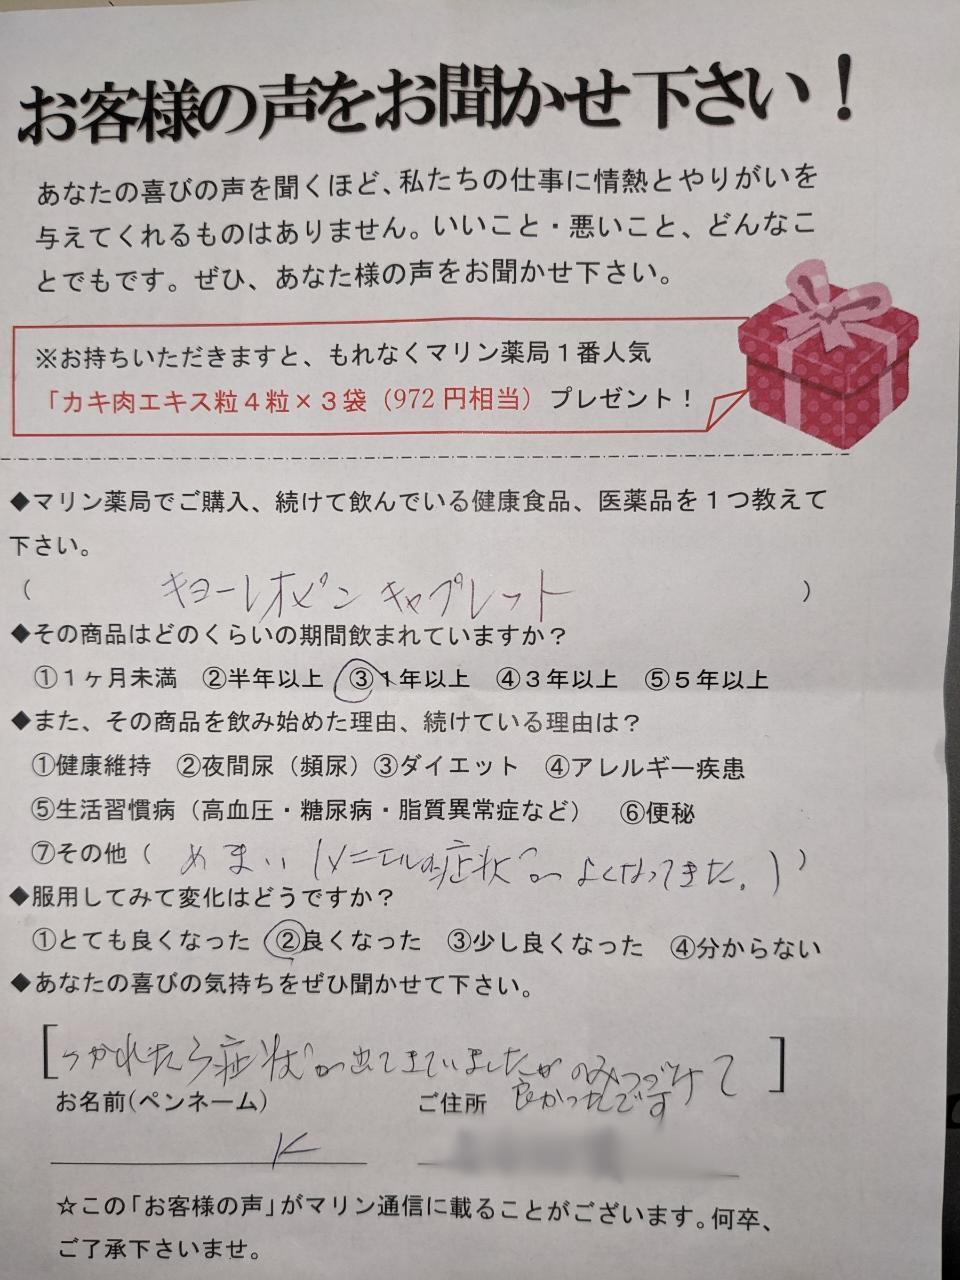 お客様の声をお聞かせ下さい！
あなたの喜びの声を聞くほど、私たちの仕事に情熱とやりがいを
与えてくれるものはありません。いいこと・悪いこと、どんなこ
とでもです。ぜひ、あなた様の声をお聞かせ下さい。
※お持ちいただきますと、もれなくマリン薬局１番人気
「カキ肉エキス粒４粒×３袋（972円相当）プレゼント！
◆マリン薬局でご購入、続けて飲んでいる健康食品、医薬品を１つ教えて
下さい。
（ キヨーレオピン キャプレット ）
◆その商品はどのくらいの期間飲まれていますか？
①１ヶ月未満 ②半年以上 ③１年以上 ④３年以上 ⑤５年以上
◆また、その商品を飲み始めた理由、続けている理由は？
①健康維持 ②夜間尿（頻尿）③ダイエット ④アレルギー疾患
⑤生活習慣病（高血圧・糖尿病・脂質異常症など） ⑥便秘
⑦その他（ めまい（メニエルの症状がよくなってきた。））
◆服用してみて変化はどうですか？
①とても良くなった ②良くなった ③少し良くなった ④分からない
◆あなたの喜びの気持ちをぜひ聞かせて下さい。
［つかれたら症状が出てきていましたがのみつづけて
良かったです］
お名前(ペンネーム) ご住所
K
☆この「お客様の声」がマリン通信に載ることがございます。何卒、
ご了承下さいませ。